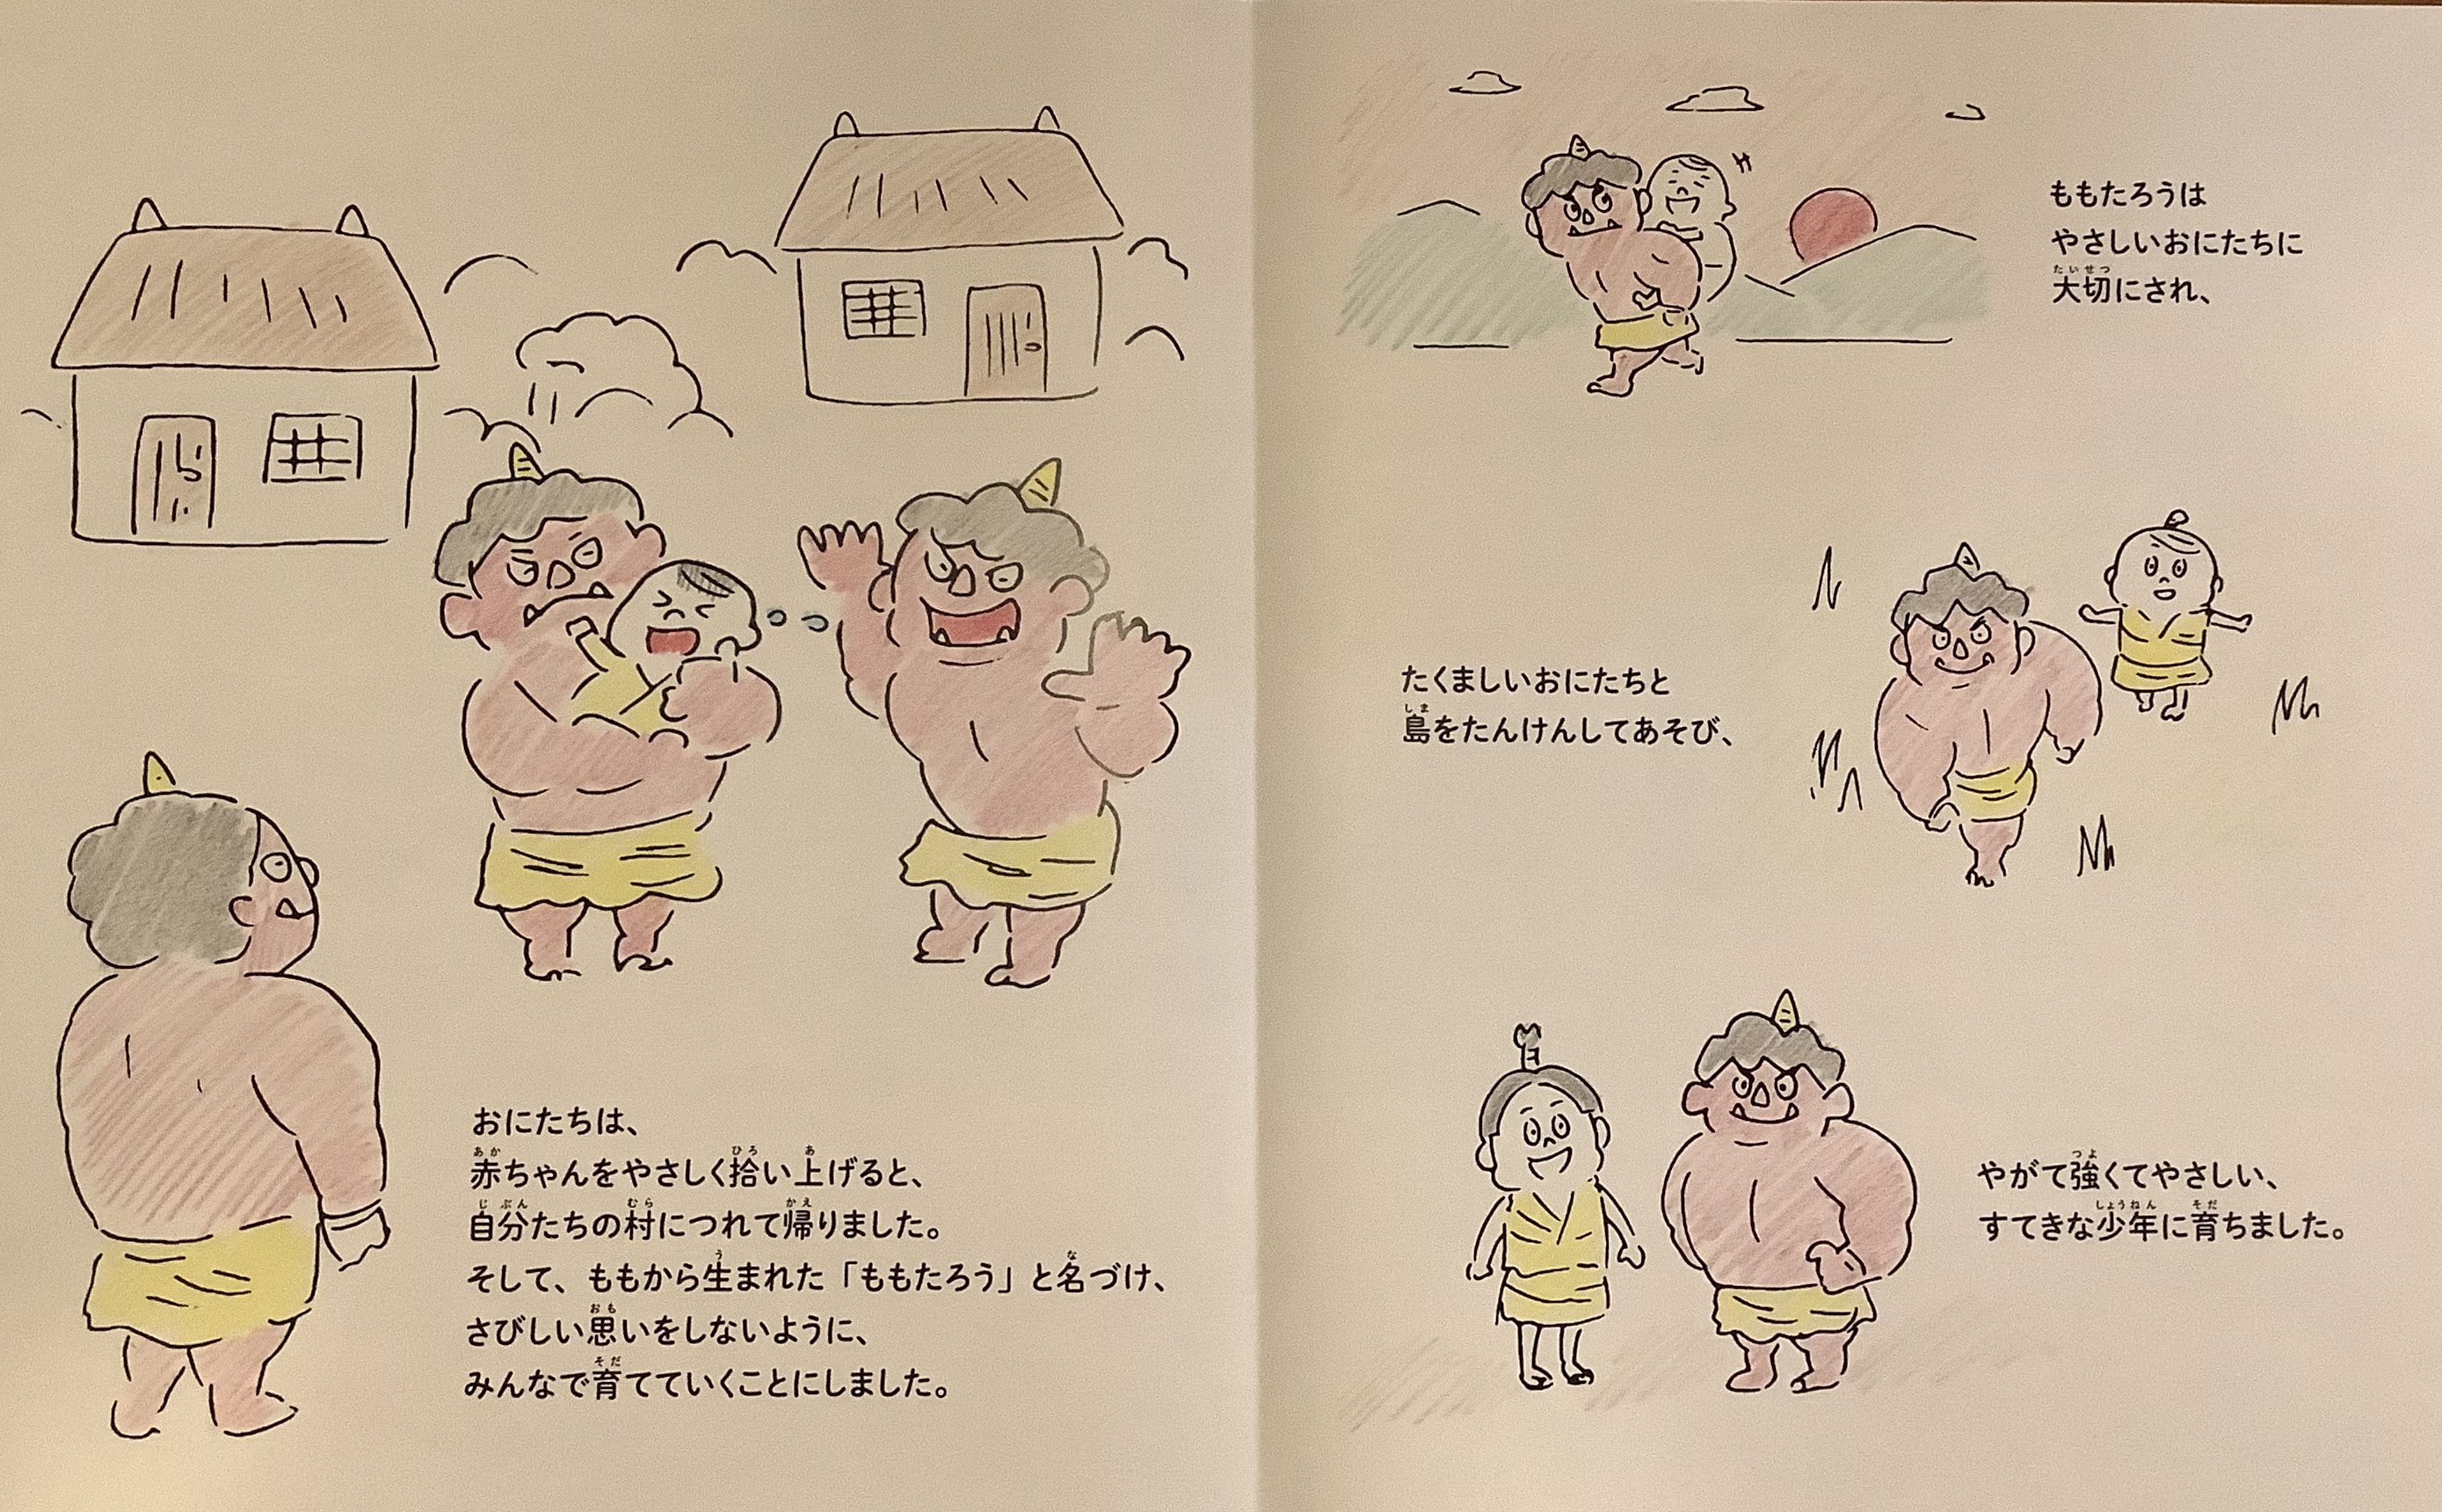 おにたちは、
赤ちゃんをやさしく拾い上げると、
自分たちの村につれて帰りました。
そして、ももから生まれた「ももたろう」と名づけ、
さびしい思いをしないように、
みんなで育てていくことにしました。
ももたろうは
やさしいおにたちに
大切にされ、
たくましいおにたちと
島をたんけんしてあそび、
やがて強くてやさしい、
すてきな少年に育ちました。